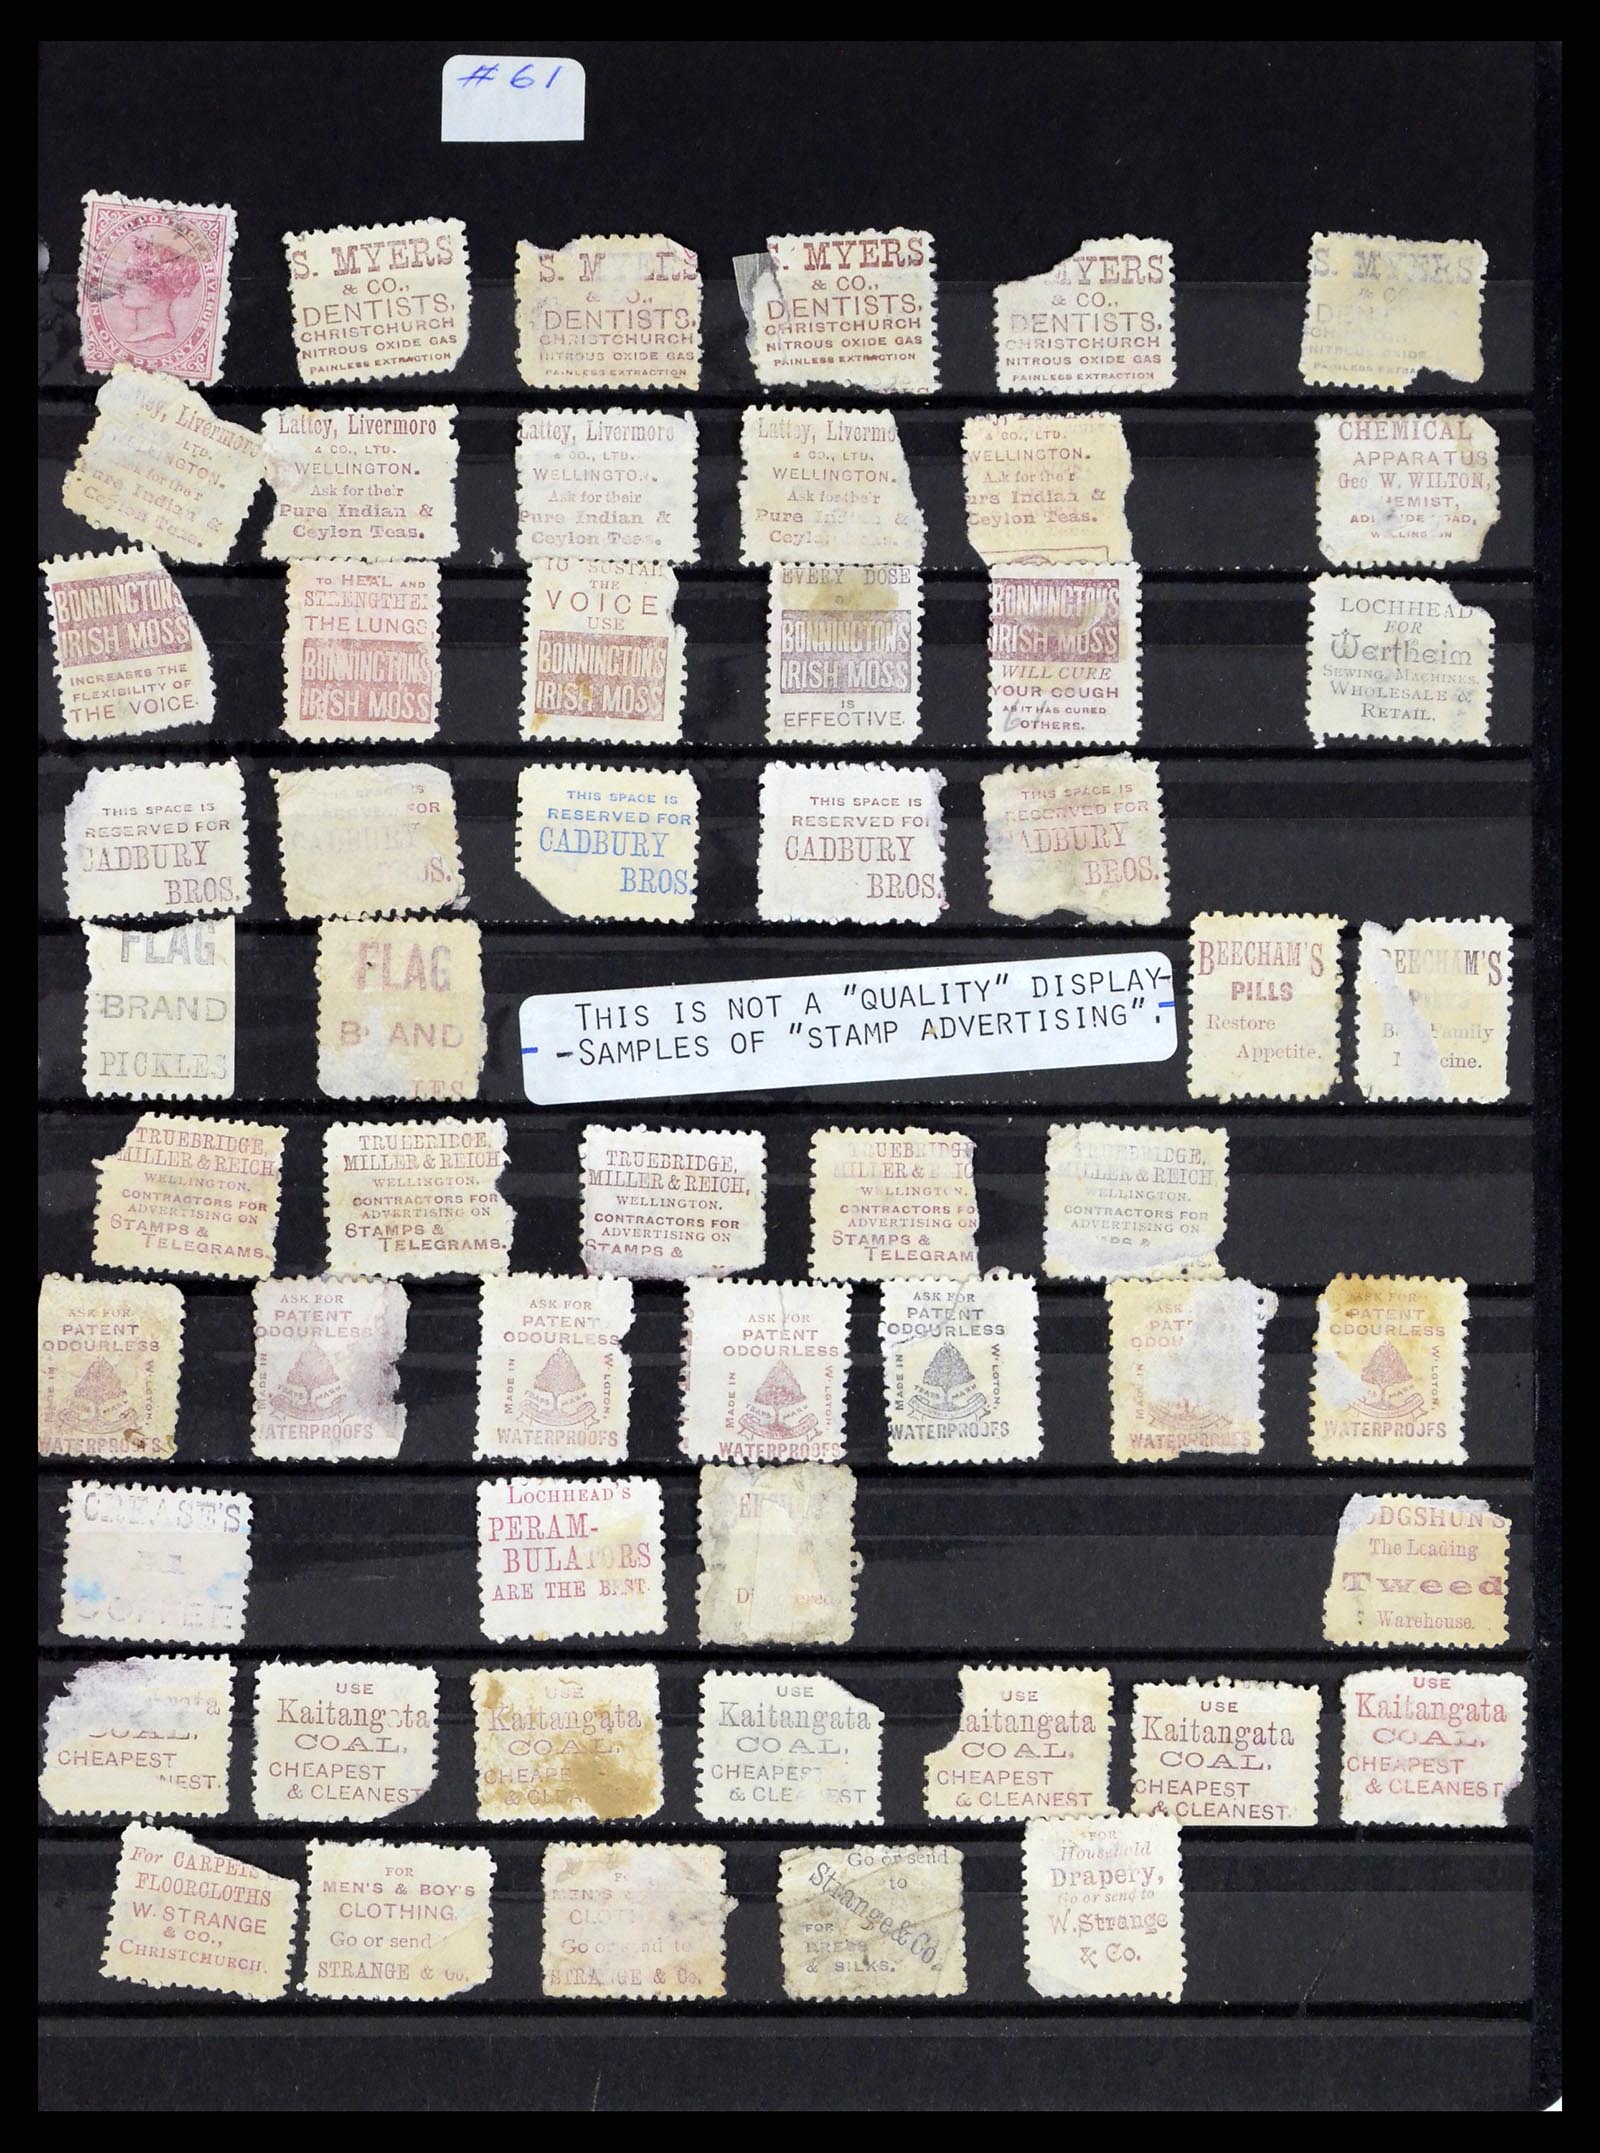 # 61
NEW ZEALAND POSTAGE & REVENUE
ONE PENNY
S. MYERS
& CO.,
DENTISTS,
CHRISTCHURCH
NITROUS OXIDE GAS
PAINLESS EXTRACTION
S. M
& CO.,
DENTISTS,
CHRISTCHURCH
NITROUS OXIDE GAS
PAINLESS EXTRACTION
S. MYERS
& CO.,
DENTISTS,
CHRISTCHURCH
NITROUS OXIDE GAS
PAINLESS EXTRACTION
MYERS
& CO.,
DENTISTS,
CHRISTCHURCH
NITROUS OXIDE GAS
PAINLESS EXTRACTION
S. MYERS
& CO
NITROUS OXIDE
PAINLESS EXTRA
Livermore
LTD.
WELLINGTON.
Ask for their
Pure Indian &
Ceylon Teas.
Lattey, Livermore
& CO., LTD.
WELLINGTON.
Ask for their
Pure Indian &
Ceylon Teas.
Lattey, Livermore
& CO., LTD.
WELLINGTON.
Ask for their
Pure Indian &
Ceylon Teas.
Lattey, Livermo
& CO., LTD.
WELLINGTON.
Ask for their
Pure Indian &
Ceylon Teas.
& CO., LTD.
WELLINGTON.
Ask for their
ure Indian &
Ceylon Teas.
CHEMICAL
APPARATUS
Geo W. WILTON,
HEMIST,
WELLINGTON
BONNINGTON'S
IRISH MOSS
INCREASES THE
FLEXIBILITY OF
THE VOICE.
TO HEAL AND
STRENGTHEN
THE LUNGS,
BONNINGTON'S
IRISH MOSS
TO SUSTAIN
THE
VOICE
USE
BONNINGTON'S
IRISH MOSS
EVERY DOSE
BONNINGTON'S
IRISH MOSS
IS
EFFECTIVE.
BONNINGTON'S
IRISH MOSS
WILL CURE
YOUR COUGH
AS IT HAS CURED
OTHERS.
LOCHHEAD
FOR
Wertheim
SEWING MACHINES.
WHOLESALE &
RETAIL.
THIS SPACE IS
RESERVED FOR
CADBURY
BROS.
THIS SPACE IS
FOR
CADBURY
OS.
THIS SPACE IS
RESERVED FOR
CADBURY
BROS.
THIS SPACE IS
RESERVED FOR
CADBURY
BROS.
THIS SPACE IS
RESERVED FOR
CADBURY
BROS.
FLAG
BRAND
PICKLES
FLAG
B AND
LES
THIS IS NOT A "QUALITY" DISPLAY-
-SAMPLES OF "STAMP ADVERTISING".
BEECHAM'S
PILLS
Restore
Appetite.
BEECHAM'S
Family
cine.
TRUEBRIDGE,
MILLER & REICH
WELLINGTON.
CONTRACTORS FOR
ADVERTISING ON
STAMPS &
TELEGRAMS.
TRUEBRIDGE,
MILLER & REICH
WELLINGTON.
CONTRACTORS FOR
ADVERTISING ON
STAMPS &
TELEGRAMS.
TRUEBRIDGE,
MILLER & REICH,
WELLINGTON.
CONTRACTORS FOR
ADVERTISING ON
STAMPS &
RUEBRIDGE
MILLER &
WELLINGTON.
CONTRACTORS FO
ADVERTISING ON
STAMPS &
TELEGRAM
TRUEBRIDGE,
MILLER & REICH
WELLINGTON.
CONTRACTORS FOR
ADVERTISING ON
ASK FOR
PATENT
ODOURLESS
MADE IN
W.LGTON.
WATERPROOFS
ASK FOR
PATENT
ODOURLESS
MADE IN
TRADE MARK
WATERPROOFS
ASK FOR
PATENT
ODOURLESS
MADE IN
W.LGTON.
TRADE MARK
WATERPROOFS
ASK FOR
PATENT
ODOURLESS
MADE IN
W.LGTON.
TRADE MARK
WATERPROOFS
ASK FOR
PATENT
ODOURLESS
MADE IN
W.LGTON.
TRADE MARK
WATERPROOFS
ASK
PAT
ODOU
MADE IN
WATERPROOFS
ASK FOR
PATENT
ODOURLESS
W.LGTON.
WATERPROOFS
CREASE'S
A1
COFFEE
LOCHHEAD'S
PERAM-
BULATORS
ARE THE BEST.
ODGSHUN'S
The Leading
Tweed
Warehouse.
COAL,
CHEAPEST
NEST.
USE
Kaitangata
COAL,
CHEAPEST
& CLEANEST
USE
Kaitangata
COAL,
CHEAPE
& CLEA
USE
Kaitangata
COAL,
CHEAPEST
& CLE EST
USE
aitangata
COAL,
CHEAPEST
& CLEANEST
USE
Kaitangata
COAL,
CHEAPEST
& CLEANEST.
USE
Kaitangata
COAL,
CHEAPEST
& CLEANEST
For CARPETS
FLOORCLOTHS
W. STRANGE
& CO.,
CHRISTCHURCH.
FOR
MEN'S & BOY'S
CLOTHING
Go or send
STRANGE & Co.
MEN'S
Go or send to
STRANGE & Co.
Go or send
to
Strange & Co.
FOR
DRESS
& SILKS.
FOR
Household
Drapery,
Go or send to
W. Strange
& Co.